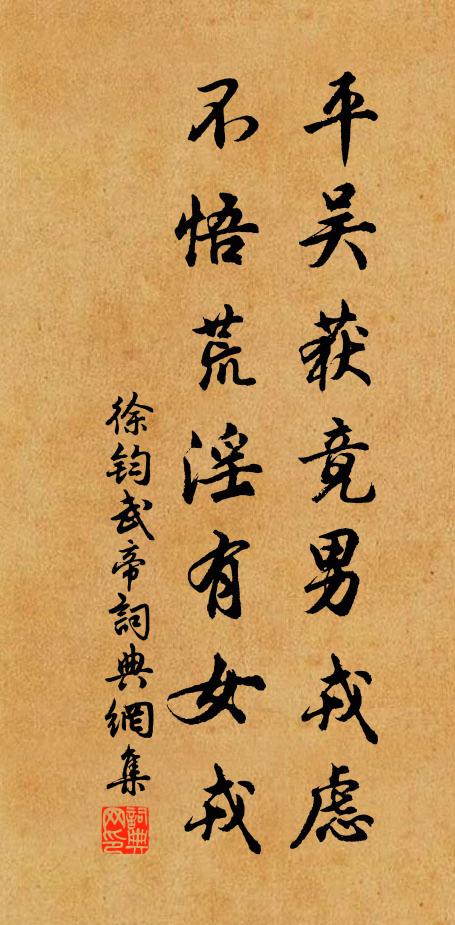 平吴获竟男戎虑
不悟荒淫有女戎
徐钧武帝詞典網集
詞典网印